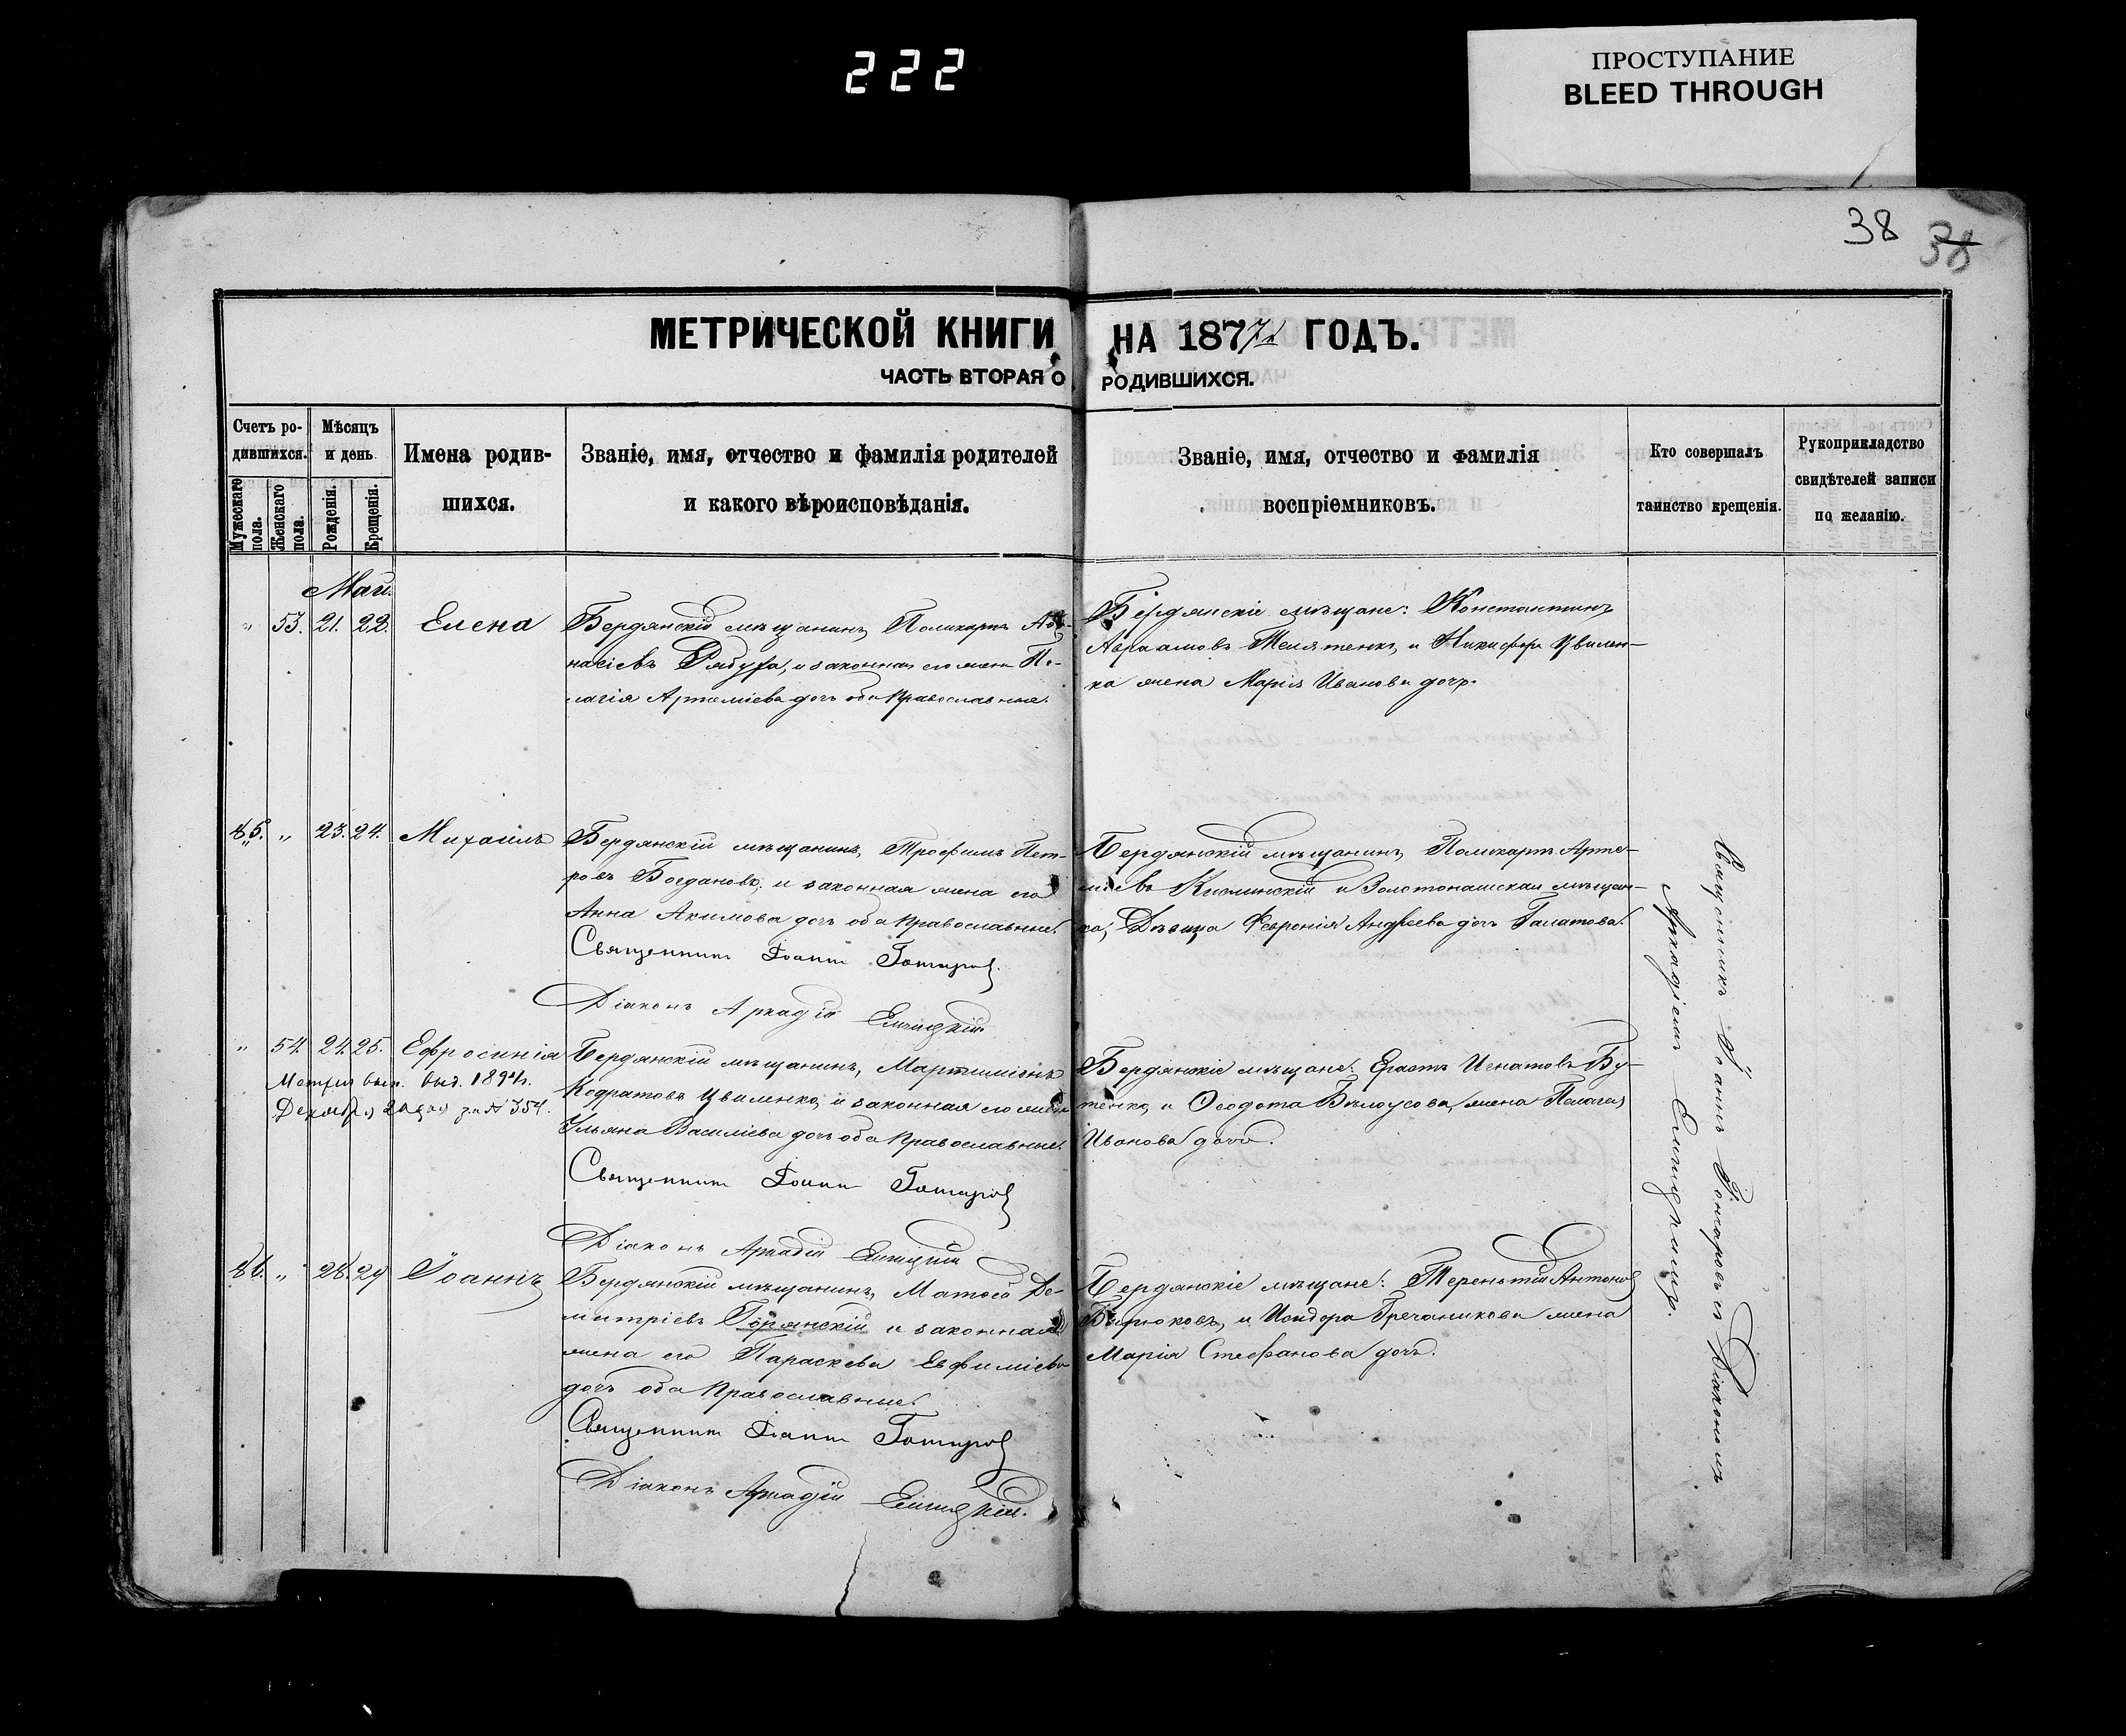 222
ПРОСТУПАНИЕ
BLEED THROUGH
38 38
МЕТРИЧЕСКОЙ КНИГИ НА 1877 ГОДЪ.
ЧАСТЬ ВТОРАЯ О РОДИВШИХСЯ.
Счетъ ро-
дившихся.
Мужескаго пола.
Женскаго пола.
Мѣсяцъ
и день
Рожденія.
Крещенія.
Имена родив-
шихся.
Званіе, имя, отчество и фамилія родителей
и какого вѣроисповѣданія.
Званіе, имя, отчество и фамилія
воспріемниковъ.
Кто совершалъ
таинство крещенія.
Рукоприкладство
свидѣтелей записи
по желанію.
Май.
" 53. 21. 22. Елена
Бердянскій мѣщанинъ, Поликарпъ Аѳа-
насіевъ Рябуха, и законная его жена Пе-
лагія Артеміева дочь оба Православные.
Бердянскіе мѣщане: Константинъ
Авраамовъ Телятенко, и Никифора Цвилен-
ка жена Марія Иванова дочь.
85. " 23. 24. Михаилъ
Бердянскій мѣщанинъ, Трофимъ Пет-
ровъ Богдановъ, и законная жена его
Анна Акимова дочь оба Православные.
Священникъ Іоаннъ Гончаровъ.
Діаконъ Аркадій
Бердянскій мѣщанинъ, Поликарпъ Арте-
міевъ и Золотоношская мѣщан-
ка, Дѣвица Февронія Андреева дочь Галатова.
" 54. 24. 25. Ефросинія
Метрич. вып. выд. 1894 г.
Декабря за № 354.
Бердянскій мѣщанинъ, Мартиміанъ
Кодратовъ Цвиленко, и законная его жена
Ульяна Василіева дочь оба Православные.
Священникъ Іоаннъ Гончаровъ
Діаконъ Аркадій
Бердянскіе мѣщане: Ерастъ Игнатовъ Бу-
тенко, и Ѳеодота Бѣлоусова, жена Пелагія
Иванова дочь.
86. " 28. 29 Іоаннъ
Бердянскій мѣщанинъ, Матѳей Ди-
митріевъ Горянскій и законная
жена его Параскева Евфиміева
дочь оба Православные.
Священникъ Іоаннъ Гончаровъ
Діаконъ Аркадій
Бердянскіе мѣщане: Терентій Антоновъ
Бирюковъ, и Исидора Гречаникова жена
Марія Стефанова дочь.
Священникъ Іоаннъ Гончаровъ съ Діакономъ
Аркадіемъ